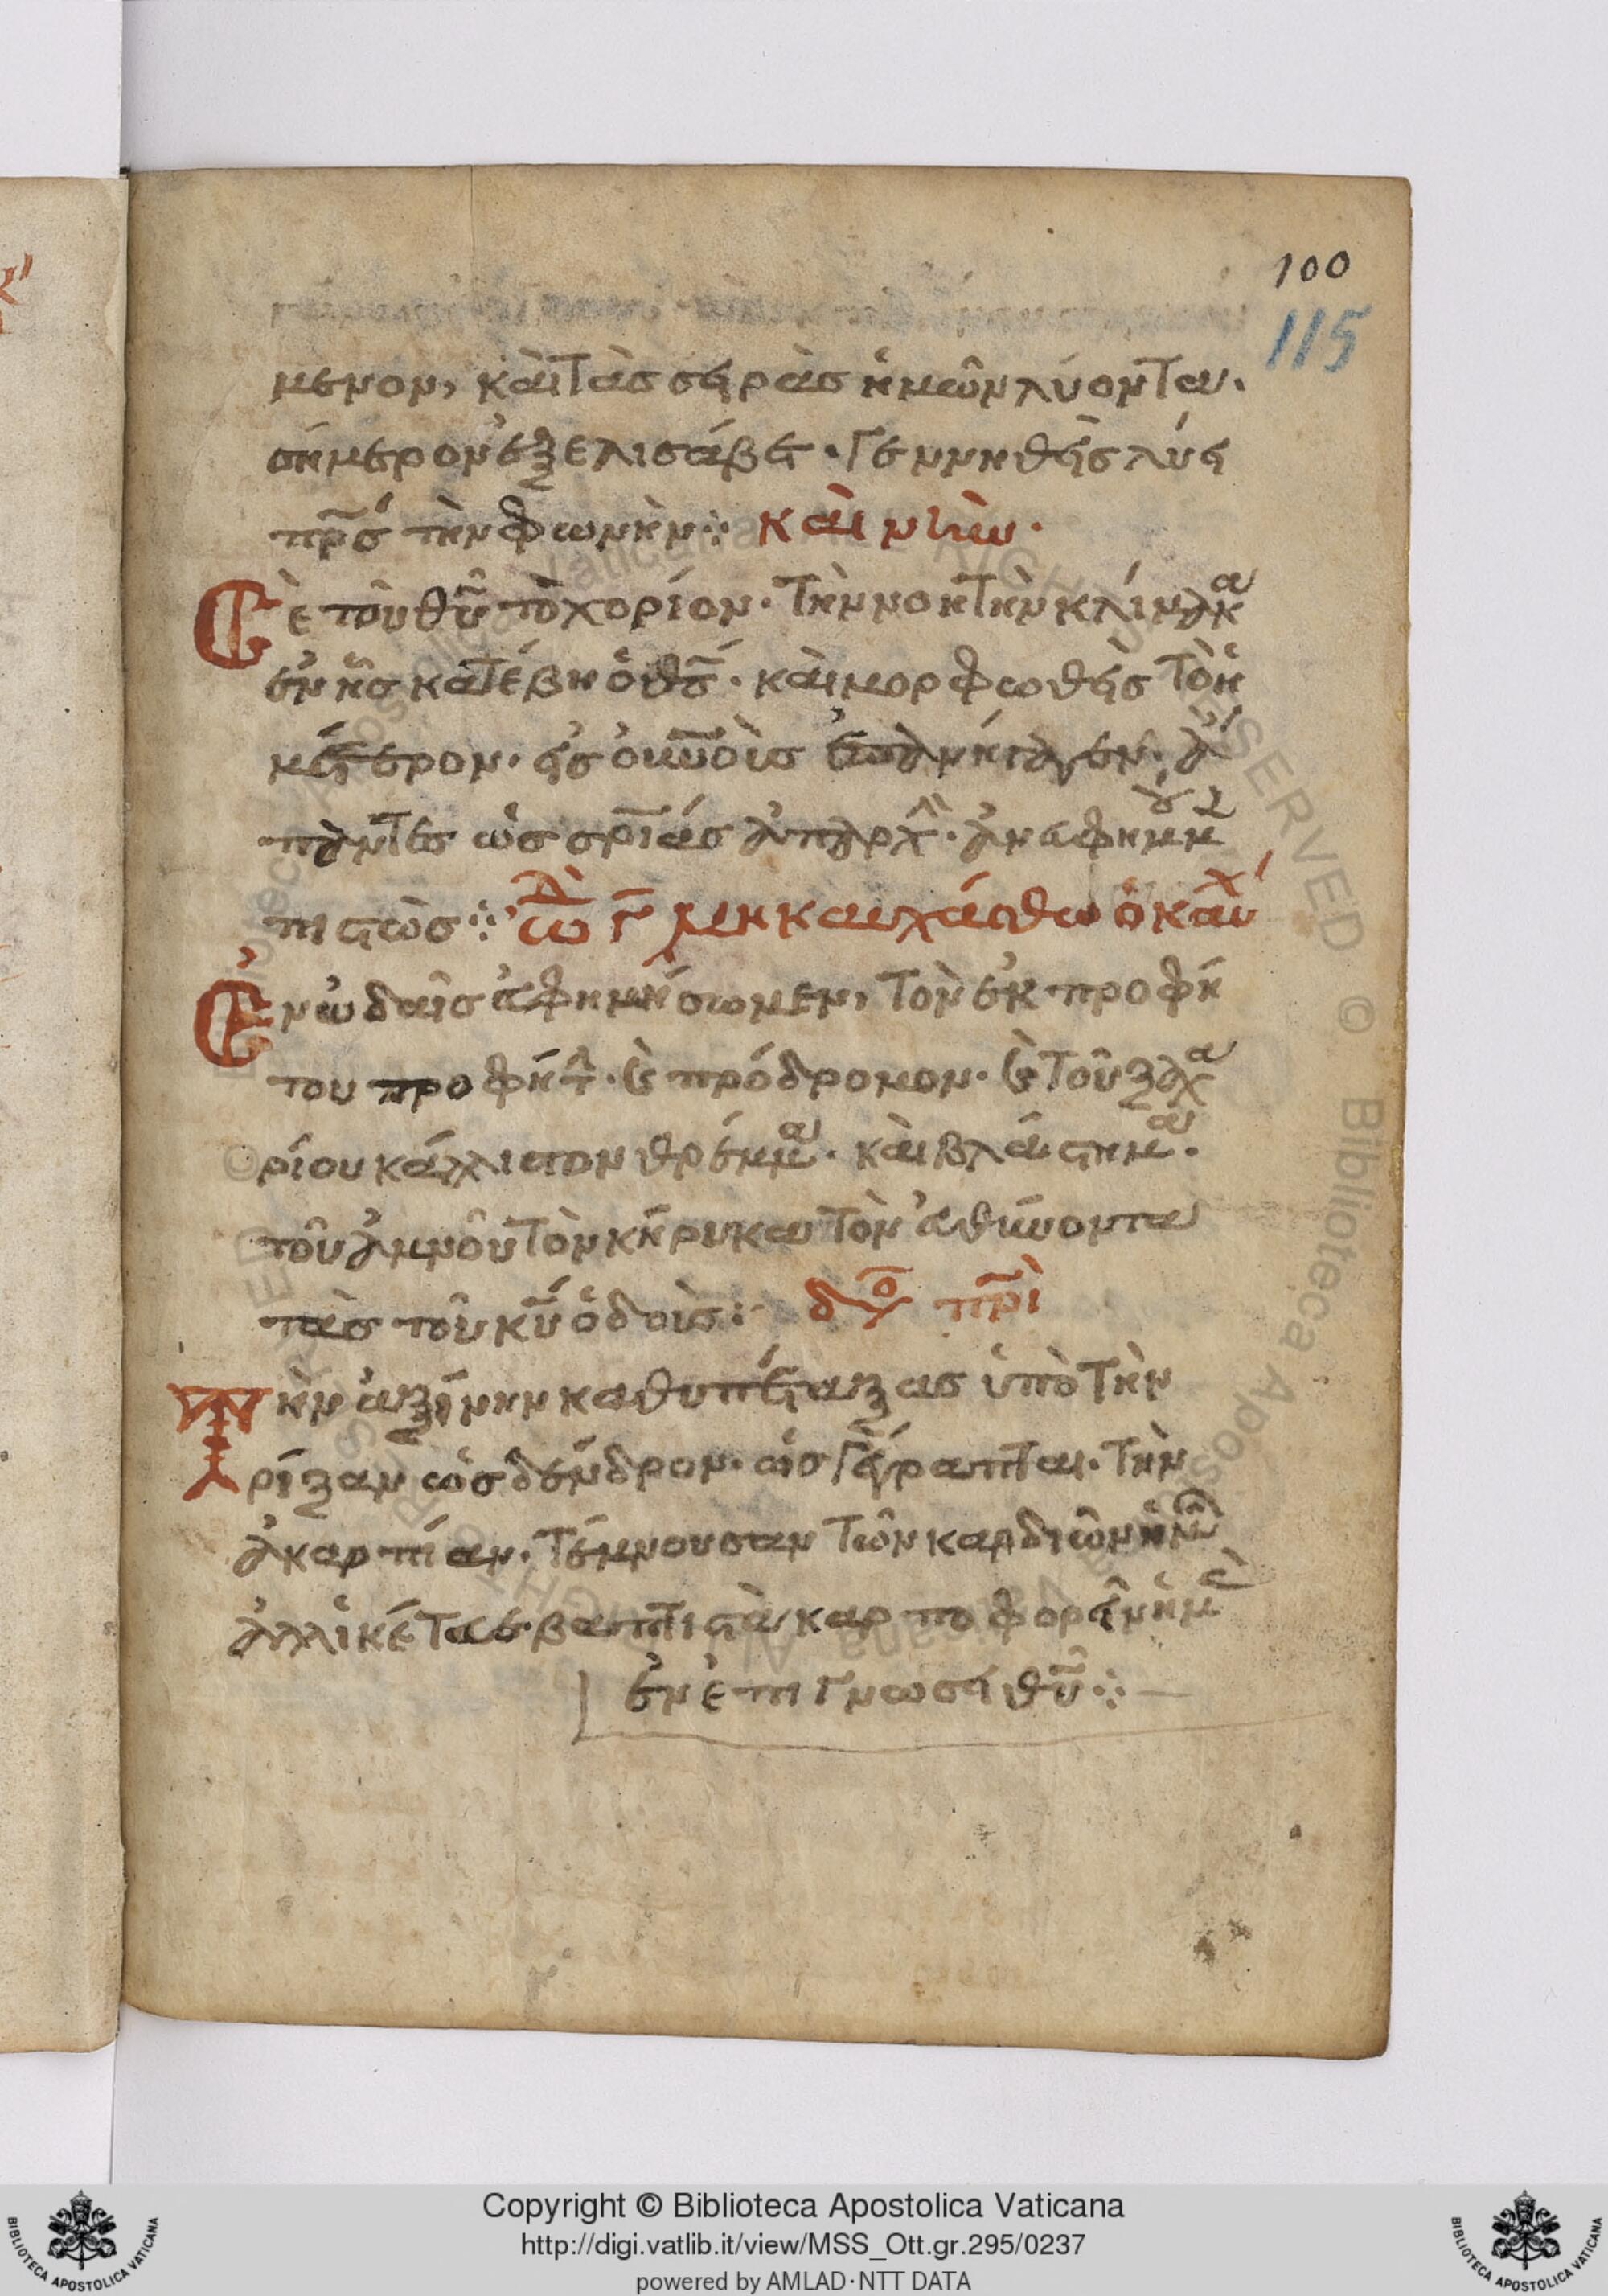 100
115
μενον, καὶ τὰσ σειρὰσ ἡμῶν λύονται.
σήμερον ἐξ ελισάβετ. Γεννηθεὶσ λύει
πρ̅σ τὴν φωνήν ⁘ καὶ νῦν.
Σὲ τοῦ θυ̅ τὸ χορίον. τὴν νοητὴν κλίμακα
ἐν ἧσ κατέβη ὁ θσ̅. καὶ μορφωθεὶσ τὸ ἡ
μέτερον.
πάντεσ ὡσ σρ̅ίασ
πιστῶσ ⁘ ὠδ γ̅ μὴ καυχάσθω ὁ καυχ
Ἐν ὠδαῖσ ἀφημήσωμεν, τὸν ἐκ προφή
του προφήτ. καὶ πρόδρομον. καὶ τοῦ ζαχα
ρίου κάλλιστον θρέμμα. καὶ βλάστημα.
τοῦ ἀμνοῦ τὸν κήρυκα τὸν
τὰσ τοῦ κυ̅ ὁδοὺσ ⁘ δοξ πρ̅ὶ
Τὴν ἀξίνην καθυπέταξασ ὑπὸ τὴν
ρίζαν ὡσ δένδρον. ὡσ γέγραπται. τὴν
ἀκαρπίαν. τέμνουσαν τῶν καρδιῶν ἡμῶ
ἀλλ' ἱκέτασ βαπτιστὰ καρποφορεῖν ἡμᾶ
ἐν ἐπιγνωσει θυ̅ ⁘ —
Copyright © Biblioteca Apostolica Vaticana
http://digi.vatlib.it/view/MSS_Ott.gr.295/0237
powered by AMLAD·NTT DATA
BIBLIOTECA APOSTOLICA VATICANA
BIBLIOTECA APOSTOLICA VATICANA